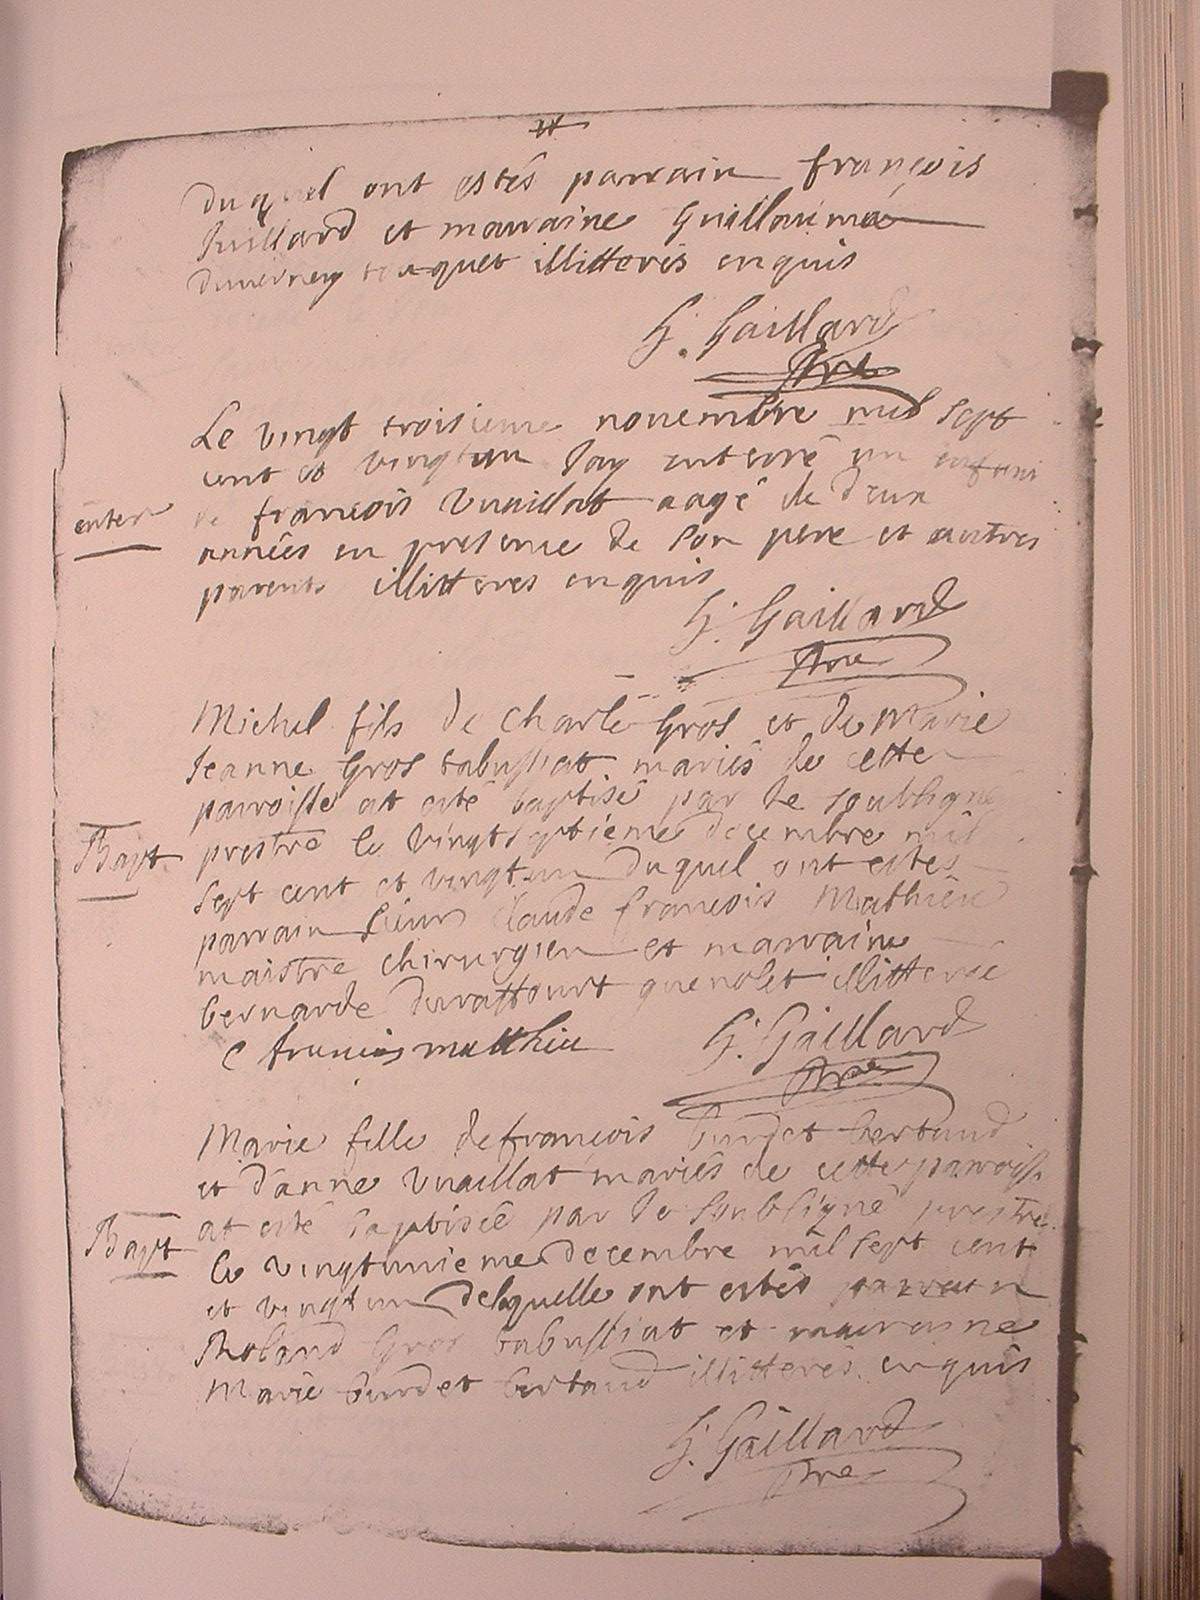 Duquel ont estés parrain françois
Juillard et marraine Guillauma
Duverney touquet illitterés enquis
G. Gaillard
Ptre
Le vingt troisieme novembre mil sept
cent et vingtun Jay enterré un enfant
enter de françois Vuaillat aagé de deux
années en presence de son pere et autres
parents illitteres enquis
G. Gaillard
Ptre
Michel fils de Charle Gros et de Marie
Jeanne Gros tabussiat mariés de cette
parroisse at esté baptisé par le soubsigné
Bapt prestre le vingtseptieme decembre mil
sept cent et vingtun Duquel ont estes
parrain sieur Claude françois Mathieu
maistre chirurgien et marraine
bernarde illitterée
C françois matthieu G. Gaillard
Ptre
Marie fille de françois burdet bertaud
et d'anne Vuaillat mariés de cette parroisse
at esté baptisée par le soubsigné prestre
Bapt le vingtunieme decembre mil sept cent
et vingtun delaquelle ont estés parrain
Roland Gros tabussiat et marraine
Marie burdet bertaud illitterés enquis
G. Gaillard
Ptre